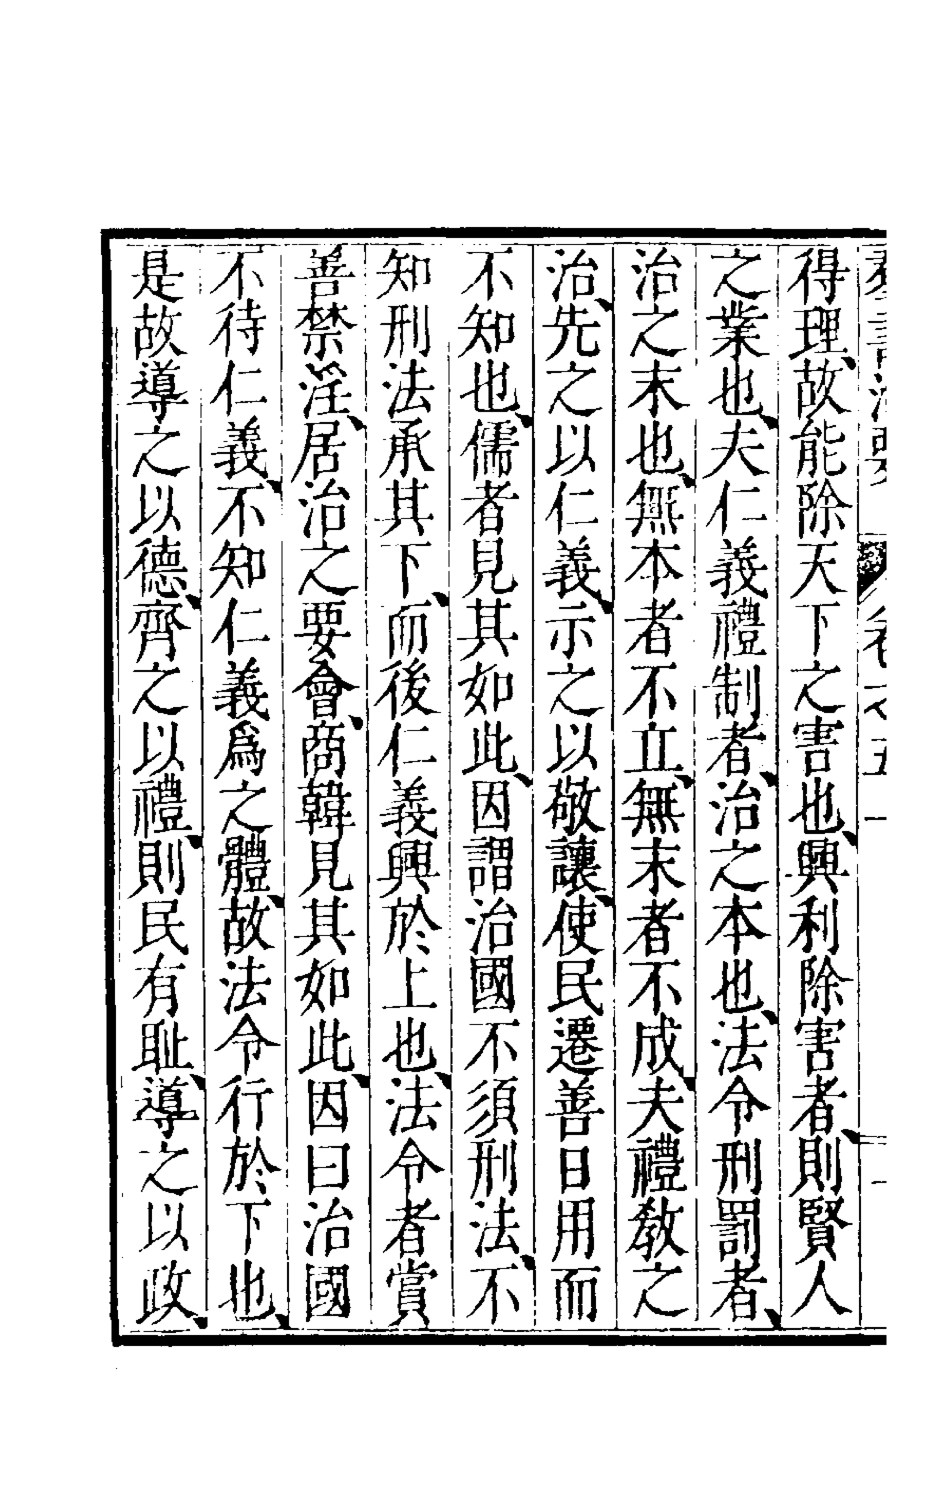 得理、故能除天下之害也、興利除害者、則賢人
之業也、夫仁義禮制者、治之本也、法令刑罰者、
治之末也、無本者不立、無末者不成、夫禮敎之
治、先之以仁義、示之以敬讓、使民遷善日用而
不知也、儒者見其如此、因謂治國不須刑法、不
知刑法承其下、而後仁義興於上也、法令者賞
善禁淫、居治之要會、商韓見其如此、因曰治國
不待仁義、不知仁義爲之體、故法令行於下也、
是故導之以德、齊之以禮、則民有耻、導之以政、